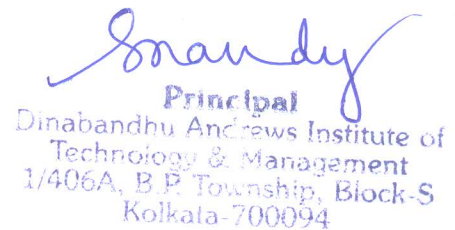 Principal
Dinabandhu Andrews Institute of
Technology & Management
1/406A, B.P. Township, Block-S
Kolkata-700094